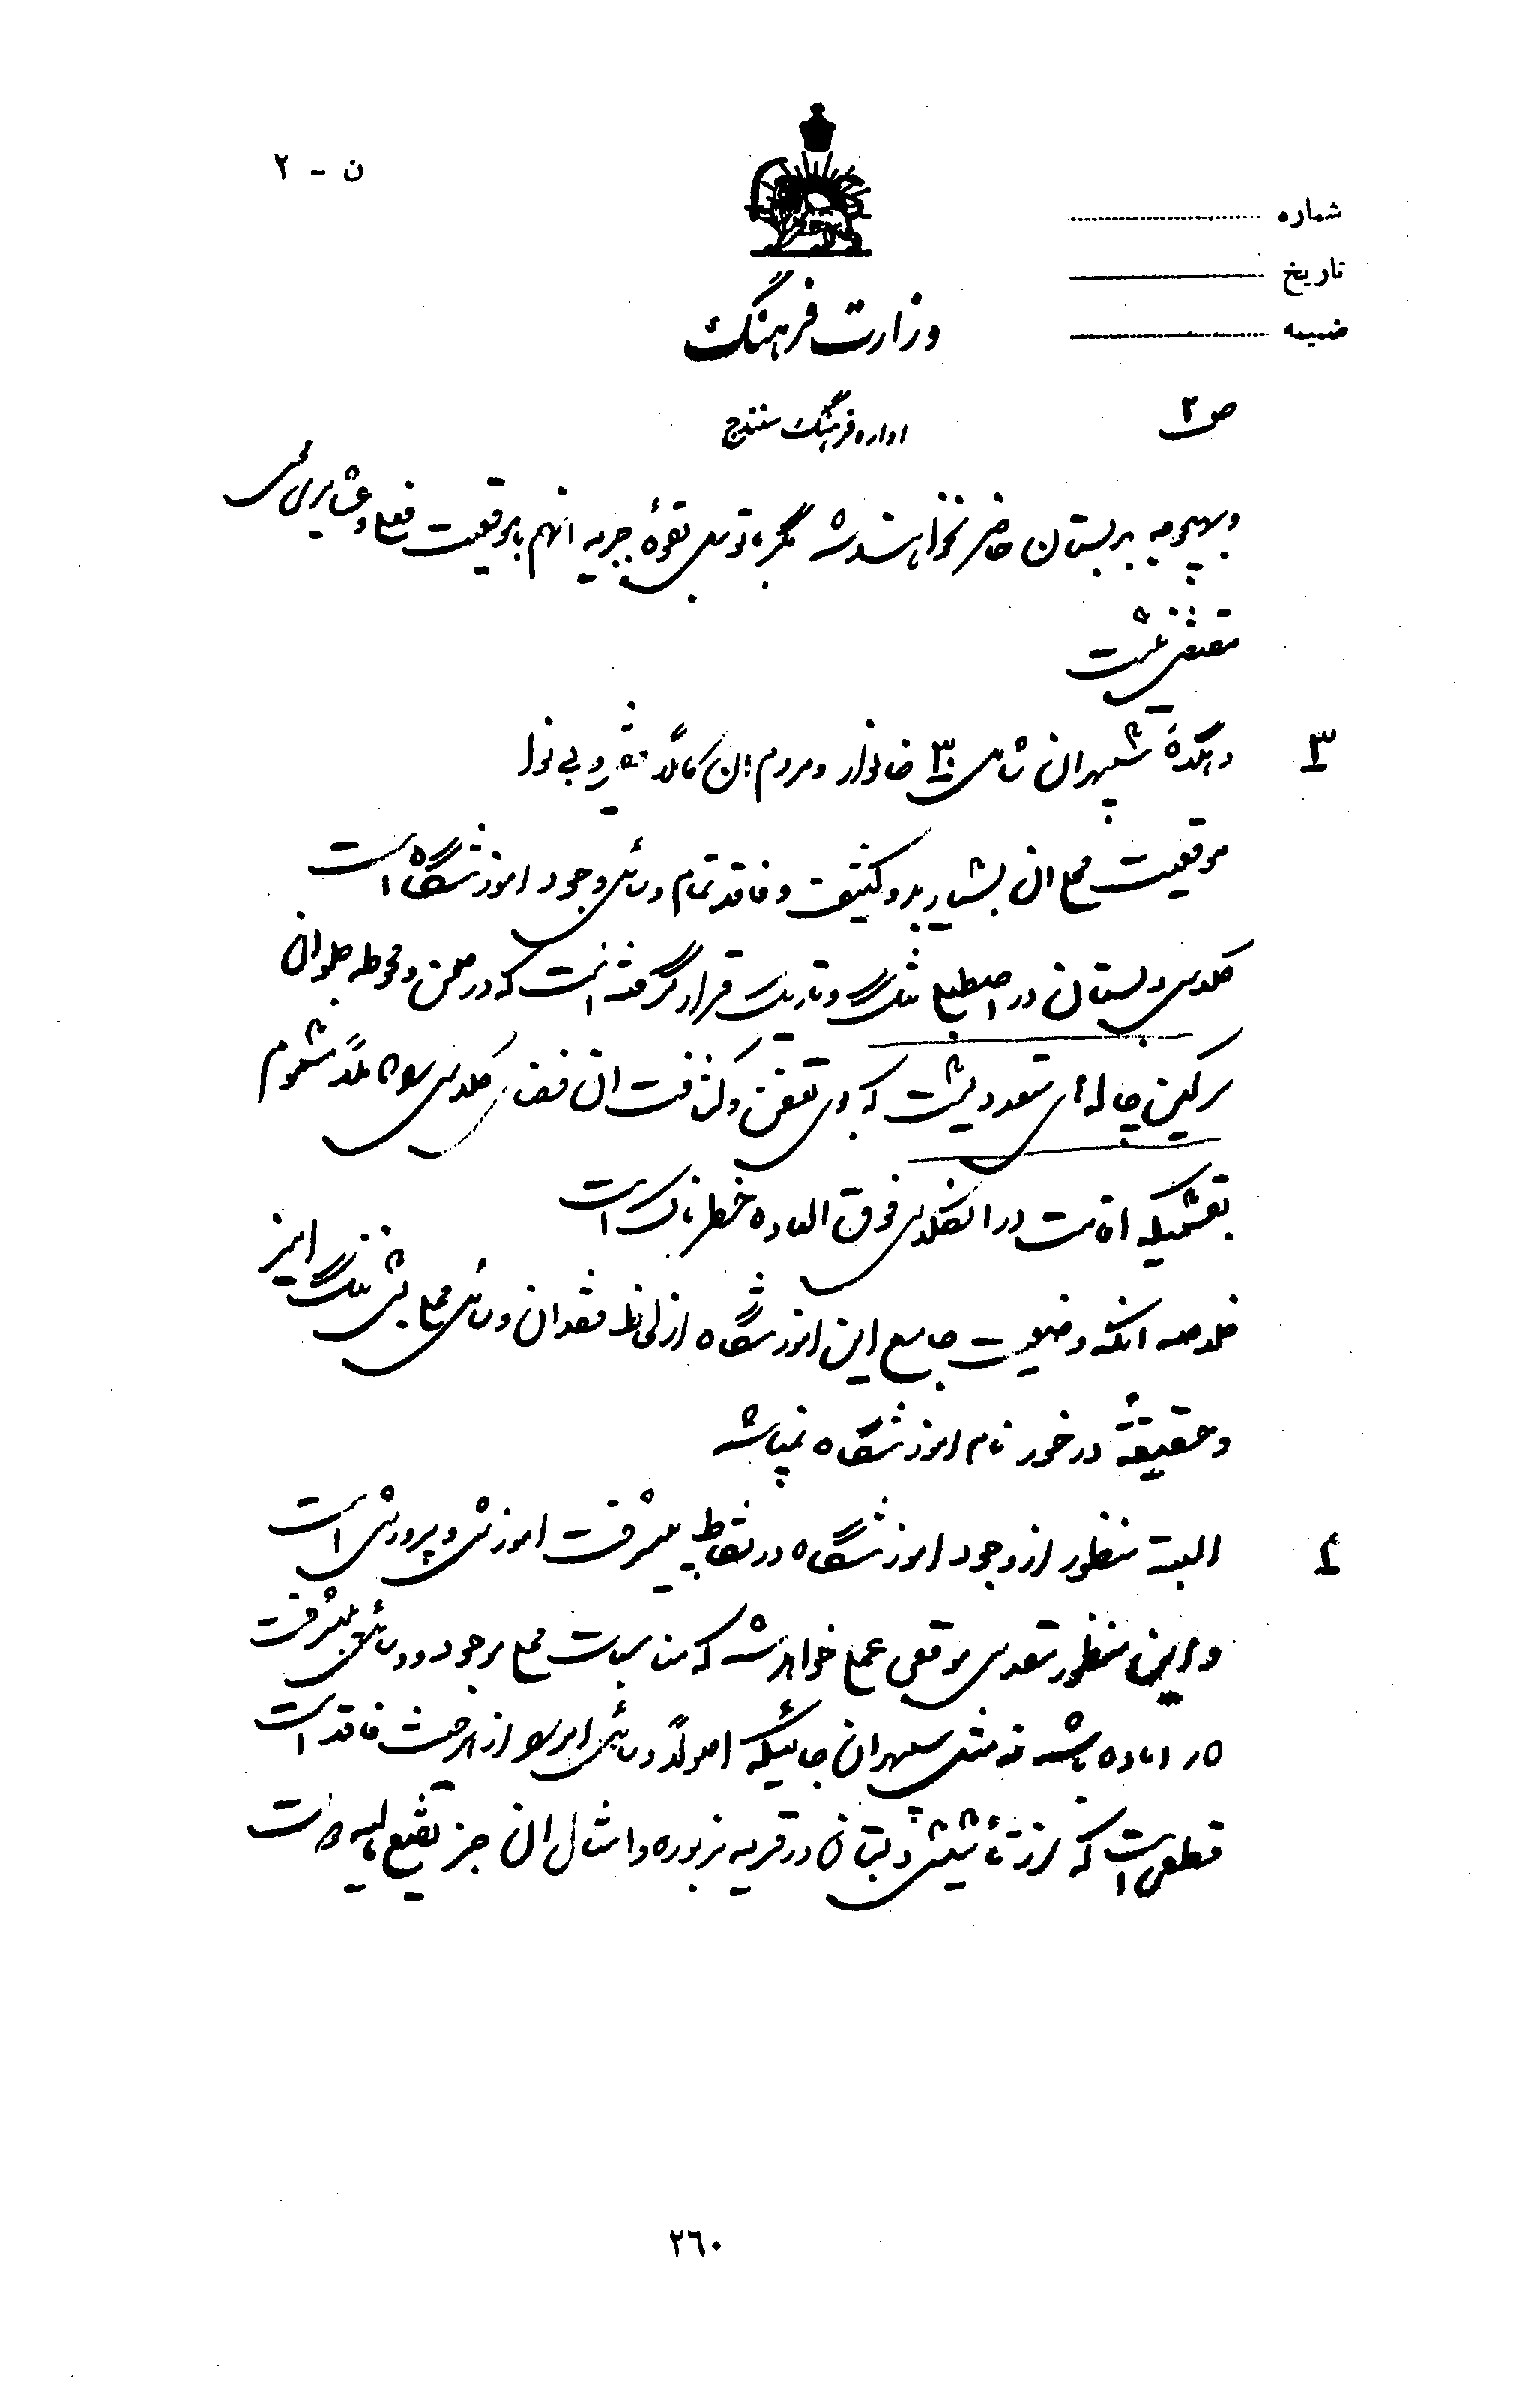 ن - ۲
شماره
تاریخ
ضمیمه
وزارت فرهنگ
اداره فرهنگ سنندج
ص ۲
وبهیچوجه بدبستان حاضر نخواهند شد مگر با توسل بقوهٔ جبریه انهم با موقعیت فعلی و عشایری محلی
مقتضی نیست
۳ دهکدهٔ شپهران شامل ۳۰ خانوار ومردم ان کاملاً فقیر و بی نوا
موقعیت محل ان بسیار بد و کثیف و فاقد تمام وسائل وجود اموزشگاه است
کلاس دبستان در اصطبل تنگ و تاریک قرار گرفته است که در صحن و محوطه جلو ان
سرگین چاله های متعدد یست که بوی تعفن و کثافت ان فضای کلاس را کاملاً مشموم
بقسمیکه اقامت در انکلاس فوق العاده خطرناک است
خلاصه انکه وضعیت جامع این اموزشگاه از لحاظ فقدان وسائل محلی بس ننگ امیز
و حقیقةً در خور نام اموزشگاه نمیباشد
٤ البته منظور از وجود اموزشگاه در نقاط پیشرفت اموزش و پرورش است
و این منظور مقدس موقعی عملی خواهد شد که مناسبات محلی موجود و وسائل پیشرفت
کار اماده باشد نه مثل سپهران جائیکه اصولاً وسائل امر را از هر حیث فاقد است
قطعی است که از تأسیس دبستان در قریه مزبوره و امثال ان جز تضیع مالیه دولت
۲٦۰